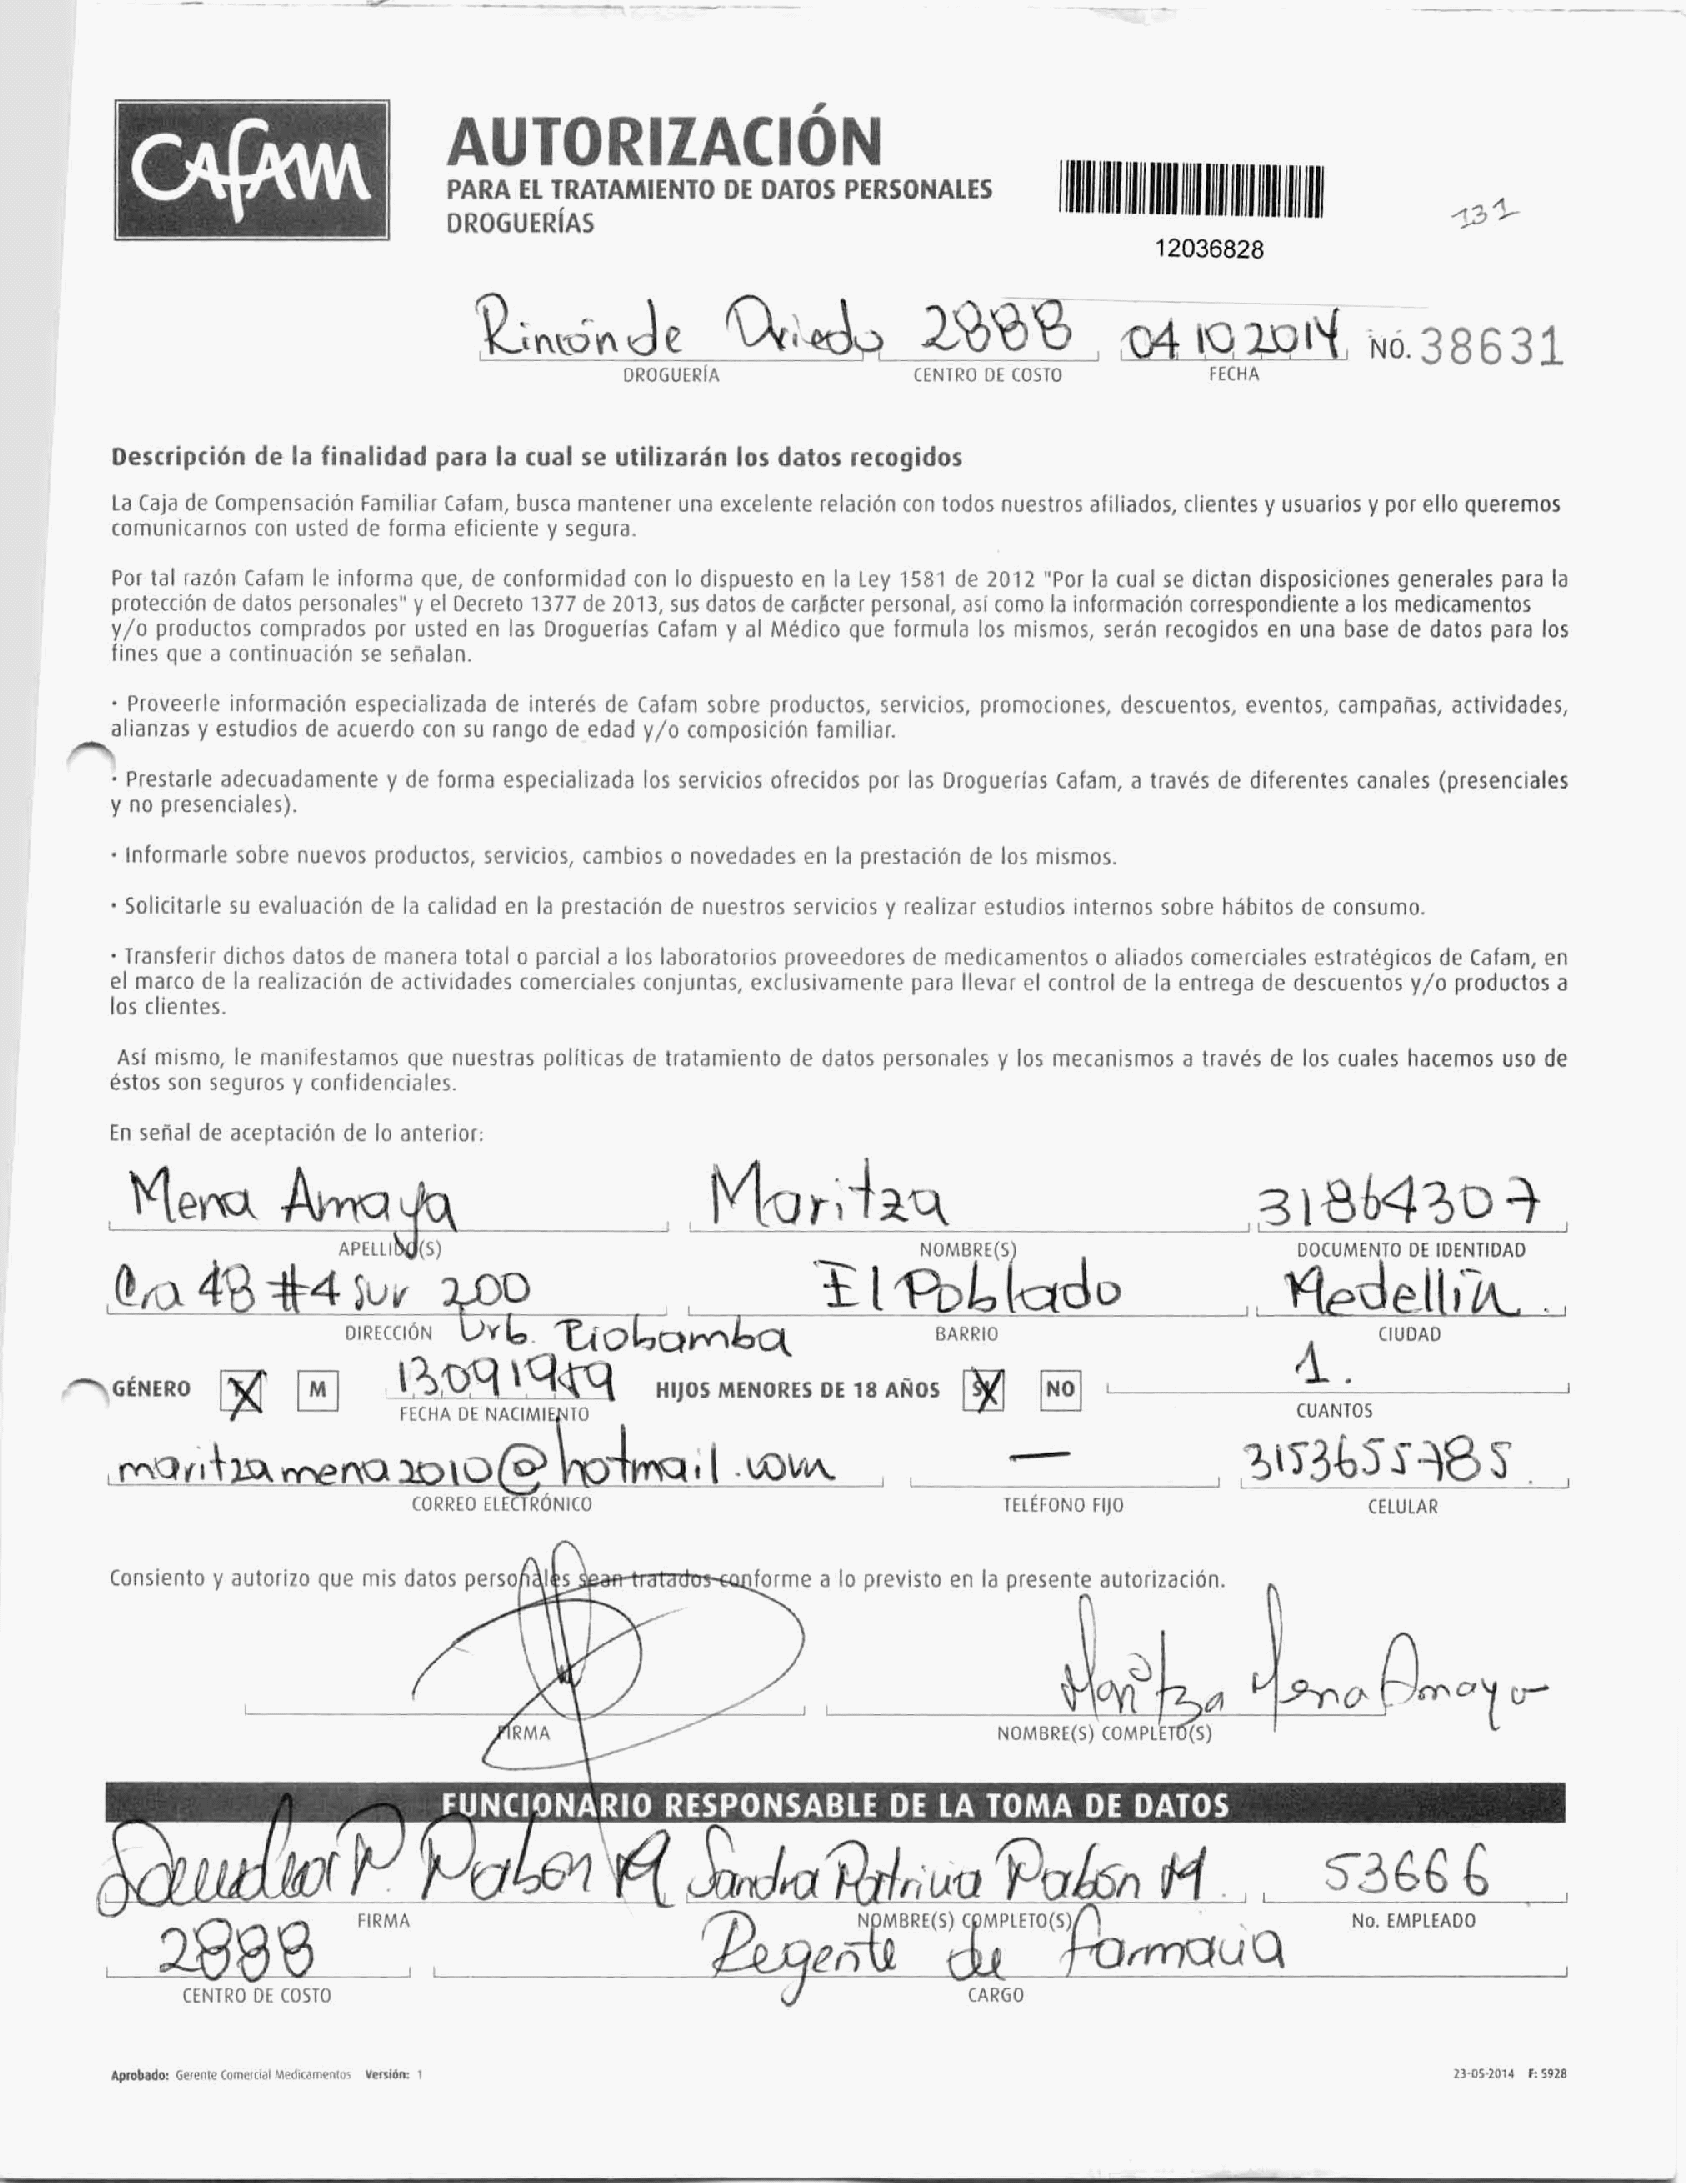 CAFAM
AUTORIZACIÓN
PARA EL TRATAMIENTO DE DATOS PERSONALES
DROGUERÍAS
12036828
131
Rincón de Oviedo 2888 04 10 2014 NO. 38631
DROGUERÍA CENTRO DE COSTO FECHA
Descripción de la finalidad para la cual se utilizarán los datos recogidos
La Caja de Compensación Familiar Cafam, busca mantener una excelente relación con todos nuestros afiliados, clientes y usuarios y por ello queremos
comunicarnos con usted de forma eficiente y segura.
Por tal razón Cafam le informa que, de conformidad con lo dispuesto en la Ley 1581 de 2012 "Por la cual se dictan disposiciones generales para la
protección de datos personales" y el Decreto 1377 de 2013, sus datos de carácter personal, así como la información correspondiente a los medicamentos
y/o productos comprados por usted en las Droguerías Cafam y al Médico que formula los mismos, serán recogidos en una base de datos para los
fines que a continuación se señalan.
· Proveerle información especializada de interés de Cafam sobre productos, servicios, promociones, descuentos, eventos, campañas, actividades,
alianzas y estudios de acuerdo con su rango de edad y/o composición familiar.
· Prestarle adecuadamente y de forma especializada los servicios ofrecidos por las Droguerías Cafam, a través de diferentes canales (presenciales
y no presenciales).
· Informarle sobre nuevos productos, servicios, cambios o novedades en la prestación de los mismos.
· Solicitarle su evaluación de la calidad en la prestación de nuestros servicios y realizar estudios internos sobre hábitos de consumo.
· Transferir dichos datos de manera total o parcial a los laboratorios proveedores de medicamentos o aliados comerciales estratégicos de Cafam, en
el marco de la realización de actividades comerciales conjuntas, exclusivamente para llevar el control de la entrega de descuentos y/o productos a
los clientes.
Así mismo, le manifestamos que nuestras políticas de tratamiento de datos personales y los mecanismos a través de los cuales hacemos uso de
éstos son seguros y confidenciales.
En señal de aceptación de lo anterior:
Mena Amaya Maritza 31864307
APELLIDO(S) NOMBRE(S) DOCUMENTO DE IDENTIDAD
Cra 48 #4 sur 200 El Poblado Medellín
DIRECCIÓN Urb. Riobamba BARRIO CIUDAD
GÉNERO X M 13 09 1959 HIJOS MENORES DE 18 AÑOS SI X NO 1.
FECHA DE NACIMIENTO CUANTOS
maritzamena2010@hotmail.com — 3153655785
CORREO ELECTRÓNICO TELÉFONO FIJO CELULAR
Consiento y autorizo que mis datos personales sean tratados conforme a lo previsto en la presente autorización.
Maritza Mena Amaya
FIRMA NOMBRE(S) COMPLETO(S)
FUNCIONARIO RESPONSABLE DE LA TOMA DE DATOS
Sandra P. Pabon M Sandra Patricia Pabón M. 53666
FIRMA NOMBRE(S) COMPLETO(S) No. EMPLEADO
2888 Regente de farmacia
CENTRO DE COSTO CARGO
Aprobado: Gerente Comercial Medicamentos Versión: 1 23-05-2014 F: 5928